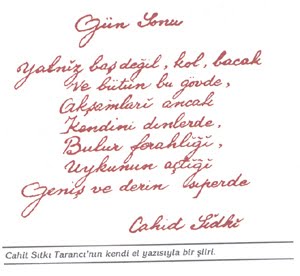 Gün Sonu
Yalnız baş değil, kol, bacak
Ve bütün bu gövde,
Akşamları ancak
Kendini dinlerde,
Bulur ferahlığı,
Uykunun açtığı
Geniş ve derin siperde
Cahid Sıdkı
Cahit Sıtkı Tarancı'nın kendi el yazısıyla bir şiiri.